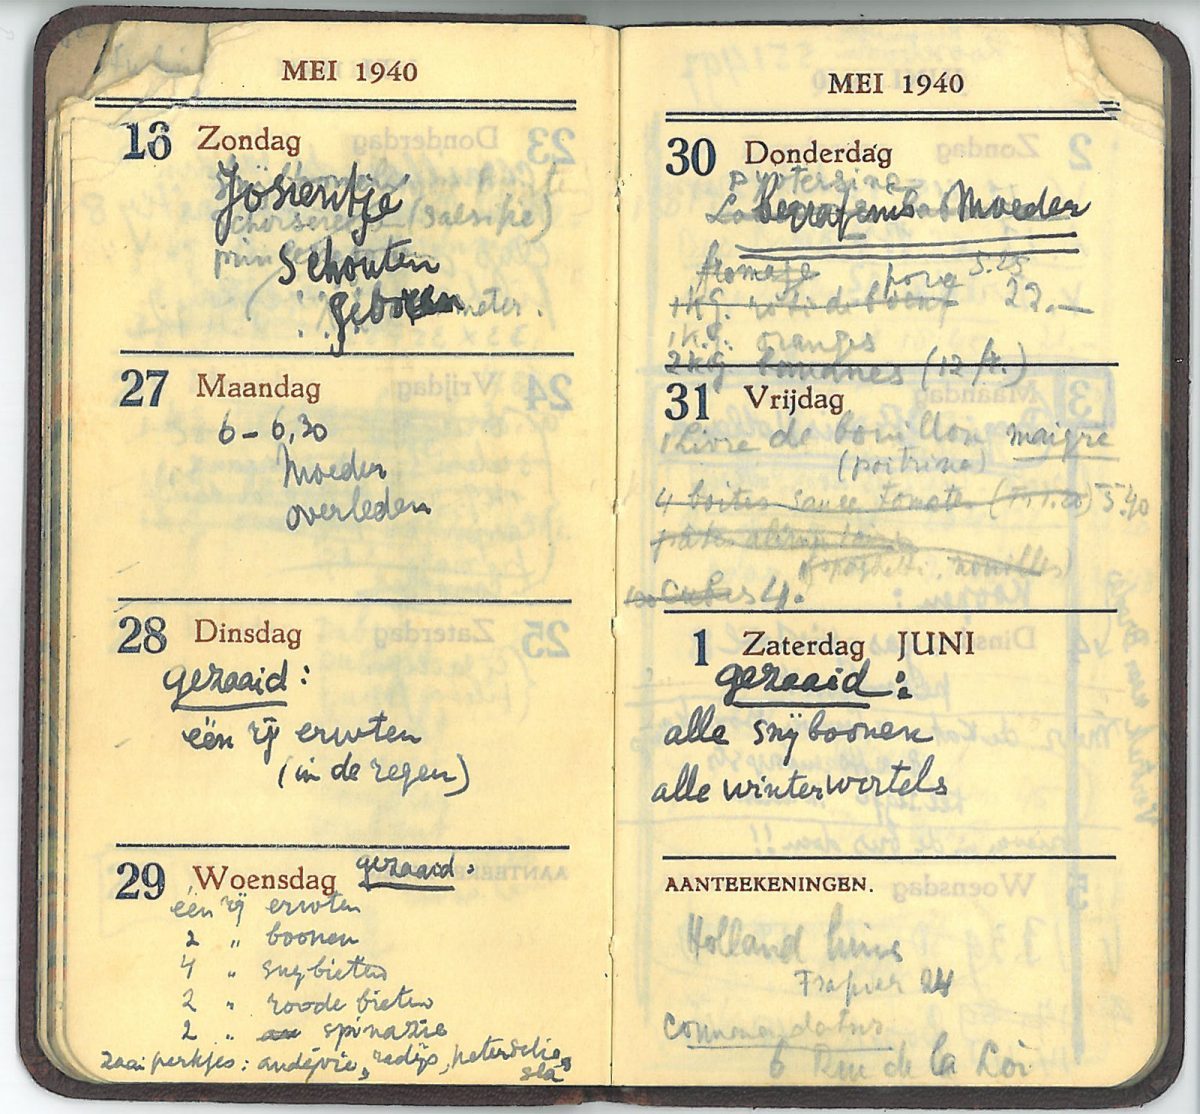 MEI 1940
Zondag
Josientje
schorseneren (salsifie)
Schouten
geboren
27 Maandag
6 - 6,30
Moeder
overleden
28 Dinsdag
gezaaid:
één rij erwten
(in de regen)
29 Woensdag gezaaid:
één rij erwten
2 " boonen
4 " snijbieten
2 " roode bieten
2 " spinazie
zaai perkjes: andijvie, radijs, peterselie,
sla
MEI 1940
30 Donderdag
begrafenis Moeder
fromage porc 5.25
1 KG. rôti de boeuf 22.—
1 KG. oranges
2 KG. bananes (12 fr.)
31 Vrijdag
1 Livre de bouillon maigre
(poitrine)
4 boites sauce tomate 5.40
spaghetti, nouilles)
Cubes 4.
1 Zaterdag JUNI
gezaaid:
alle snijboonen
alle winterwortels
AANTEEKENINGEN.
Holland huis
24
commandatur
6 Rue de la Loi